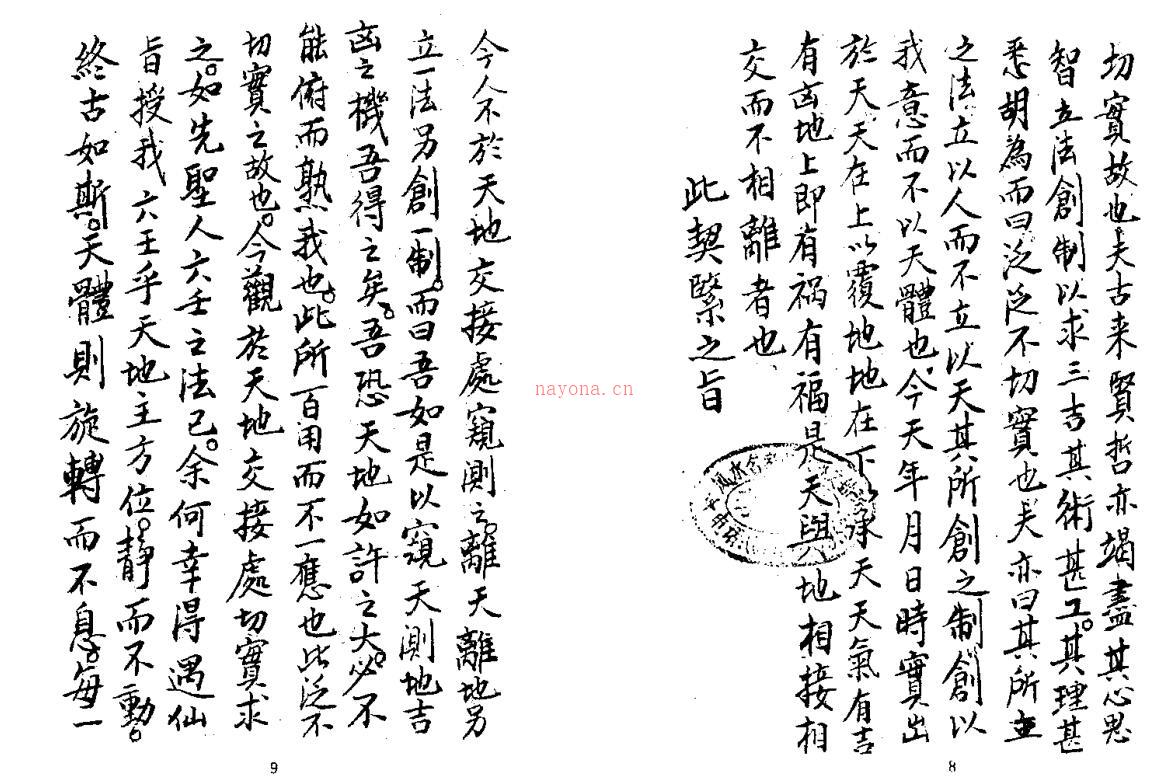 切實故也夫古来賢哲亦竭盡其心思
智立法創制以求三吉其術甚工。其理甚
悉胡為而曰泛泛不切實也夫亦曰其所立
之法立以人而不立以天其所創之制創以
我意而不以天體也今天年月日時實出
於天天在上以覆地地在下以承天天氣有吉
有凶地上即有禍有福是天與地相接相
交而不相離者也
此契緊之旨
8
今人不於天地交接處窺測之。離天離地另
立一法另創一制。而曰吾如是以窺天測地吉
凶之機吾得之矣。吾恐天地如許之大。必不
能俯而熟我也。此所百用而不一應也此泛不
切實之故也。今觀於天地交接處切實求
之。如先聖人六壬之法已。余何幸得遇仙
旨授我六壬乎天地主方位。靜而不動。
終古如斯。天體則旋轉而不息。每一
9
nayona.cn